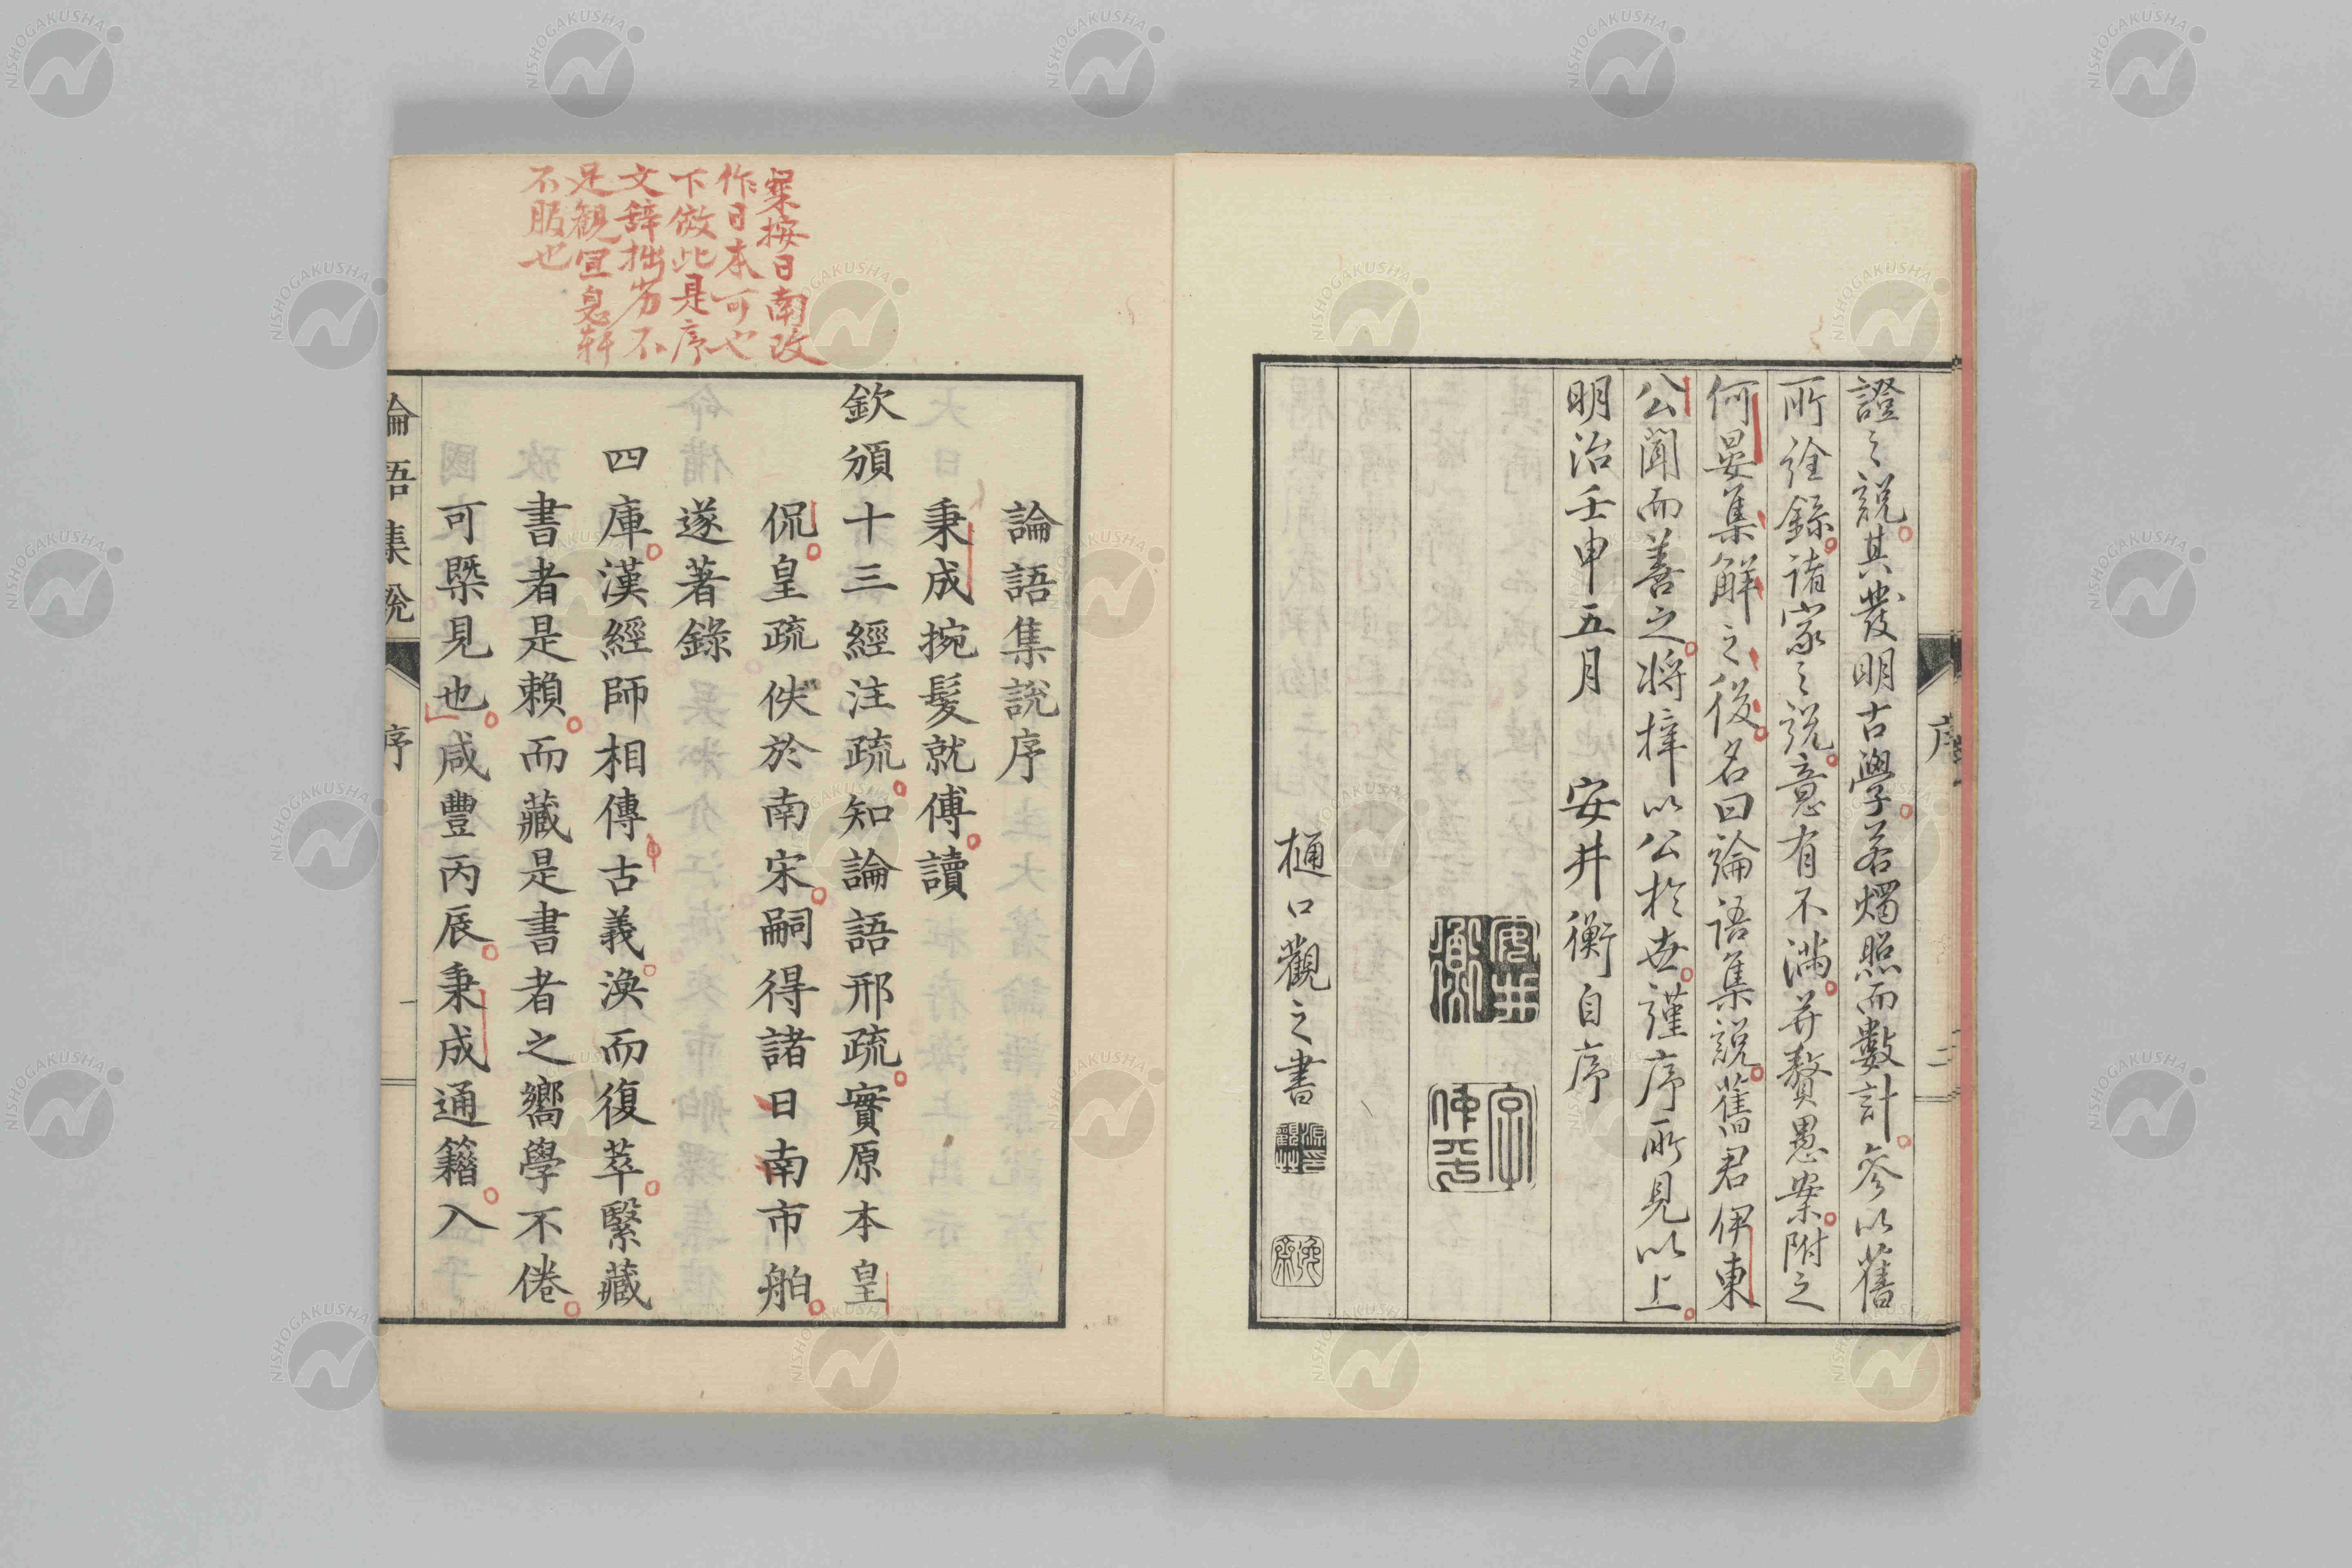 證之説其發明古學若燭照而數計參以舊
所詮錄諸家之説意有不滿并贅愚案附之
何晏集解之後名曰論語集説舊君伊東
公聞而善之將梓以公於世謹序所見以上
明治壬申五月 安井衡自序
安井
衡
字
仲平
樋口觀之書
逸齋
序
二
案按日南改
作日本可也
下倣此是序
文辞拙劣不
足觀宜息軒
不服也
論語集説序
秉成捥髮就傅讀
欽頒十三經注疏知論語邢疏實原本皇
侃皇疏佚於南宋嗣得諸日南市舶
遂著錄
四庫漢經師相傳古義渙而復萃繄藏
書者是賴而藏是書者之嚮學不倦
可槩見也咸豐丙辰秉成通籍入
論語集説
序
一
NISHOGAKUSHA